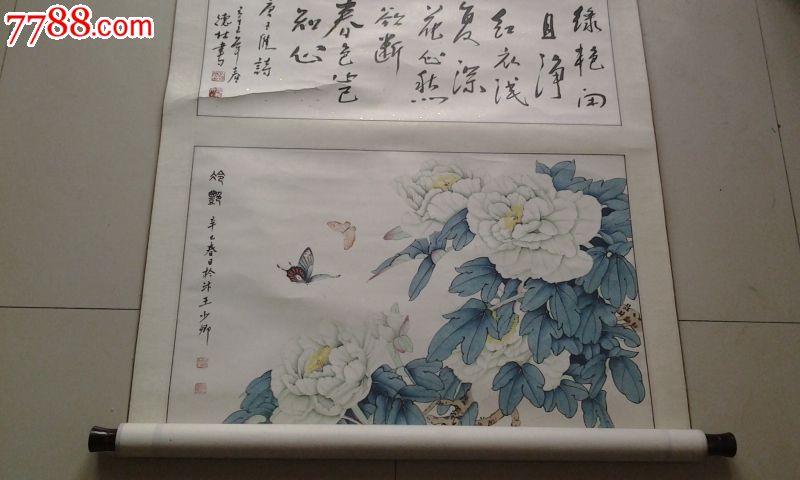 7788.com
绿艳闲
且净
红衣浅
复深
花心愁
欲断
春色岂
知心
唐王维詩
冷艷
辛巳春日於 王少卿